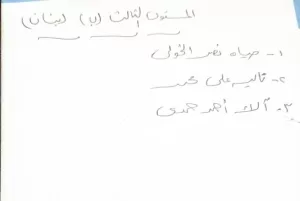 المستوى الثالث (ب) لبنان)
١- ضياء نصر الخولى
٢- تاليه على محمد
٣- آلاء أحمد حمدى